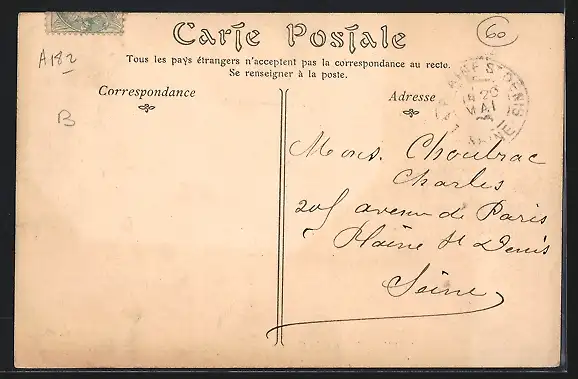 60
Carte Postale
A182
Tous les pays étrangers n'acceptent pas la correspondance au recto.
Se renseigner à la poste.
Correspondance
Adresse
B
Mons. Choubrac
Charles
205 avenue de Paris
Plaine St Denis
Seine